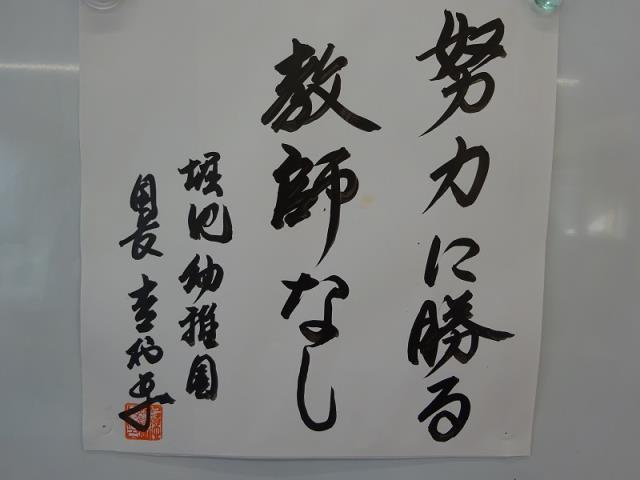 努力に勝る
教師なし
堀之内幼稚園
園長